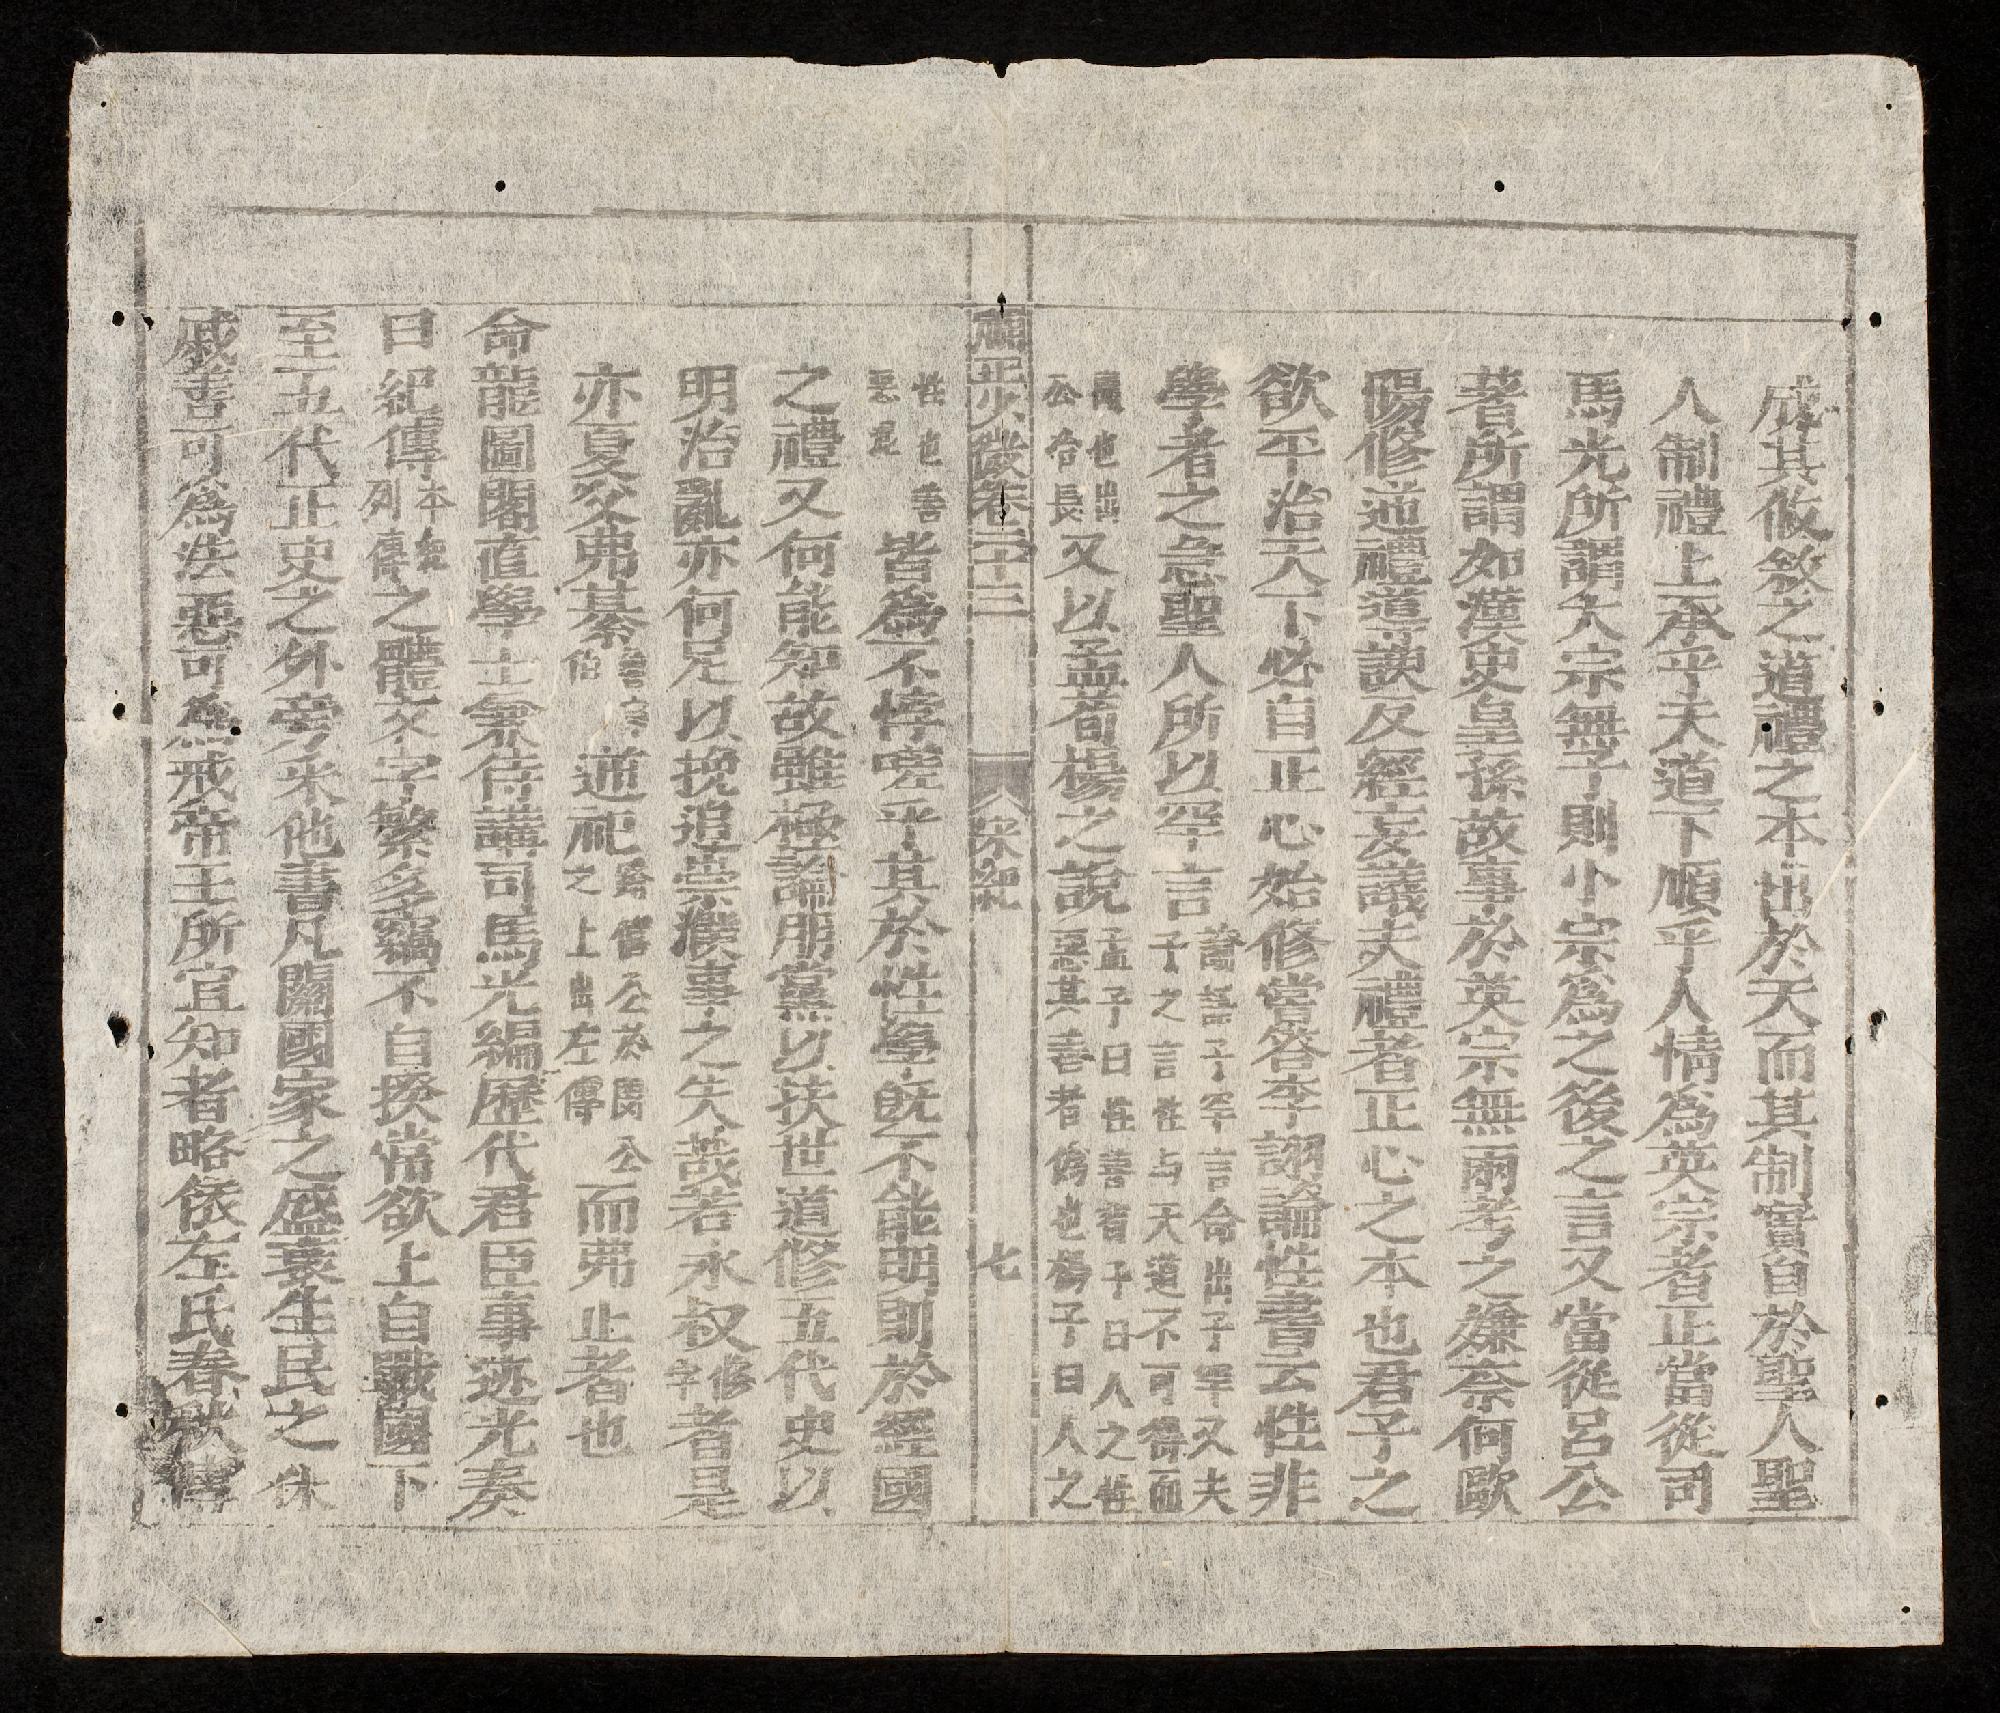 成其攸敘之道禮之本出於天而其制實自於聖人聖
人制禮上承乎天道下順乎人情為英宗者正當從司
馬光所謂大宗無子則小宗為之後之言又當從呂公
著所謂如漢史皇孫故事於英宗無兩考之嫌奈何歐
陽修逆禮道諛反經妄議夫禮者正心之本也君子之
欲平治天下必自正心始修嘗答李詡論性書云性非
學者之急聖人所以罕言論語子罕言命出子罕又夫子之言性与天道不可得而
聞也出公冶長又以孟荀楊之說孟子曰性善荀子曰人之性惡其善者偽也楊子曰人之
頒正少微卷二十三 宋紀 七
性也善惡混皆為不悖嗟乎其於性學既不能明則於經國
之禮又何能知故雖極論朋黨以扶世道修五代史以
明治亂亦何足以挽追崇濮事之失哉若永叔修字者是
亦夏父弗綦逆祀之上出左傳而弟止者也
命龍圖閣直學士兼侍講司馬光編歷代君臣事迹光奏
曰紀傳本紀列傳之體文字繁多竊不自揆常欲上自戰國下
至五代正史之外旁采他書凡關國家之盛衰生民之休
戚善可為法惡可為戒帝王所宜知者略依左氏春秋傳